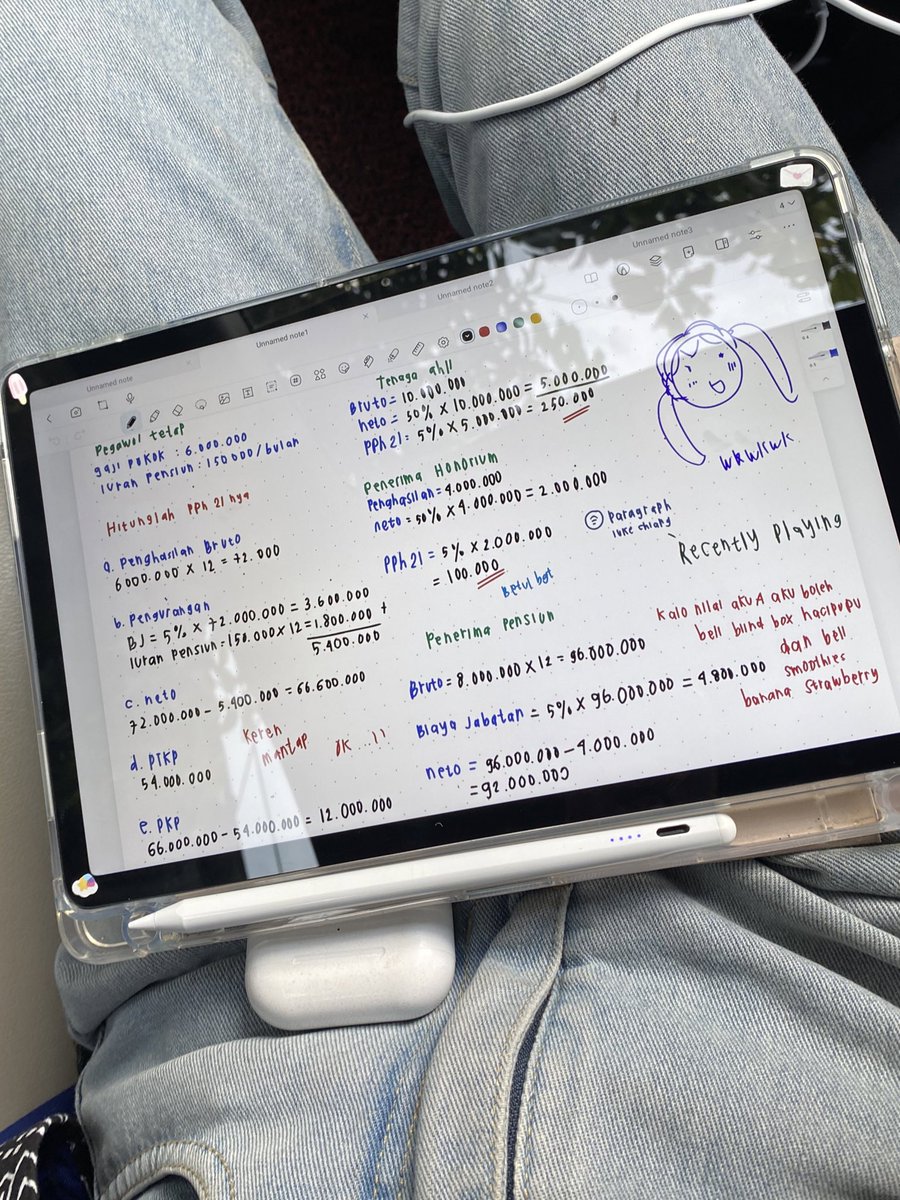 Unnamed note
Unnamed note1
Unnamed note2
Unnamed note3
4
Pegawai tetap
gaji pokok : 6.000.000
Iuran Pensiun : 150000/bulan
Hitunglah PPh 21 nya
a. Penghasilan Bruto
6.000.000 x 12 = 72.000
b. Pengurangan
BJ = 5% x 72.000.000 = 3.600.000
Iuran Pensiun = 150.000 x 12 = 1.800.000 +
5.400.000
c. neto
72.000.000 - 5.400.000 = 66.600.000
d. PTKP
54.000.000
Keren
mantap
OK ..!!
e. PKP
66.000.000 - 54.000.000 = 12.000.000
Tenaga ahli
Bruto = 10.000.000
neto = 50% x 10.000.000 = 5.000.000
PPh 21 = 5% x 5.000.000 = 250.000
Penerima Honorium
Penghasilan = 4.000.000
neto = 50% x 4.000.000 = 2.000.000
PPh 21 = 5% x 2.000.000
= 100.000
Betul bgt
Penerima Pensiun
Bruto = 8.000.000 x 12 = 96.000.000
Biaya Jabatan = 5% x 96.000.000 = 4.800.000
neto = 96.000.000 - 4.000.000
= 92.000.000
wkwkwk
Paragraph
luke chiang
Recently Playing
Kalo nilai aku A aku boleh
beli blind box hacipupu
dan beli
smoothies
banana strawberry